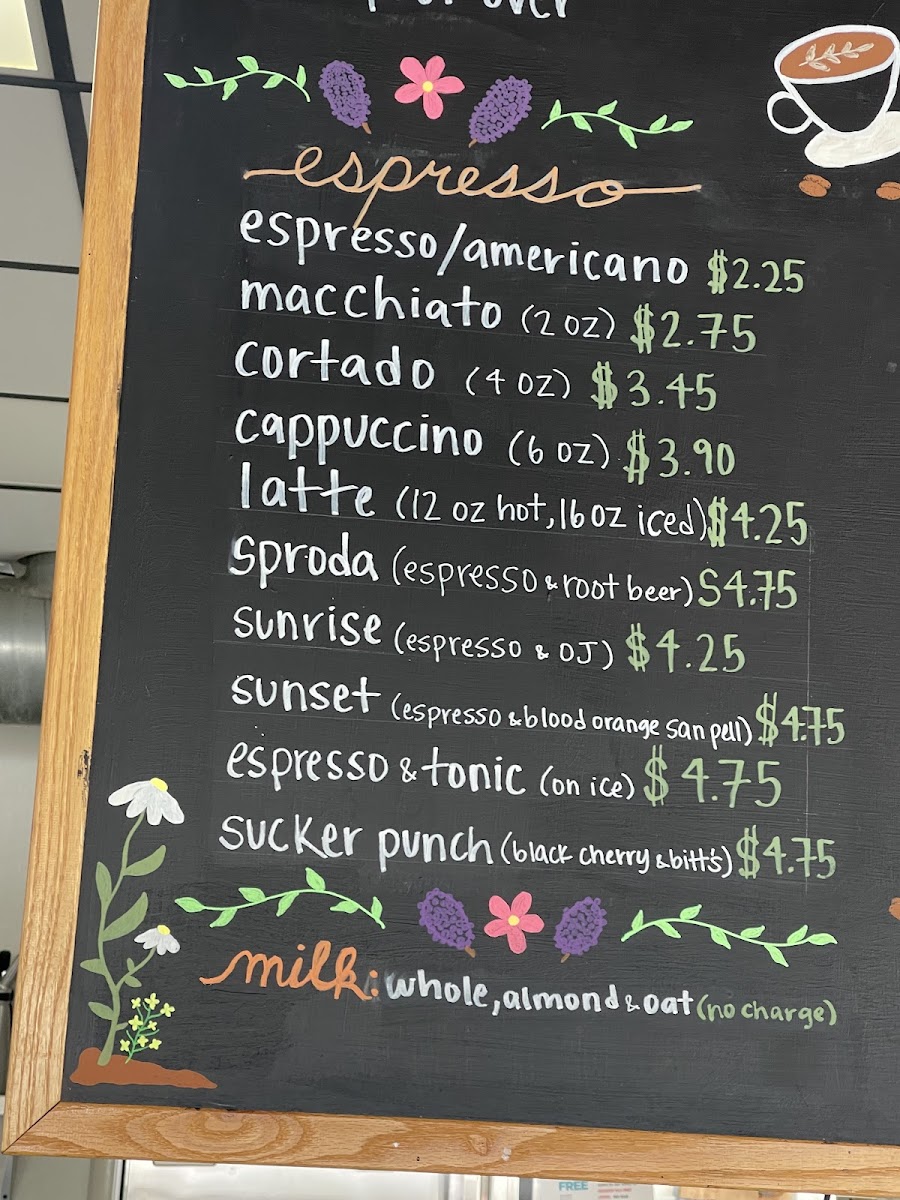 over
espresso
espresso/americano $2.25
macchiato (2 oz) $2.75
cortado (4 oz) $3.45
cappuccino (6 oz) $3.90
latte (12 oz hot, 16 oz iced) $4.25
sproda (espresso & root beer) $4.75
sunrise (espresso & OJ) $4.25
sunset (espresso & blood orange san pell) $4.75
espresso & tonic (on ice) $4.75
sucker punch (black cherry & bitt's) $4.75
milk: whole, almond & oat (no charge)
FREE